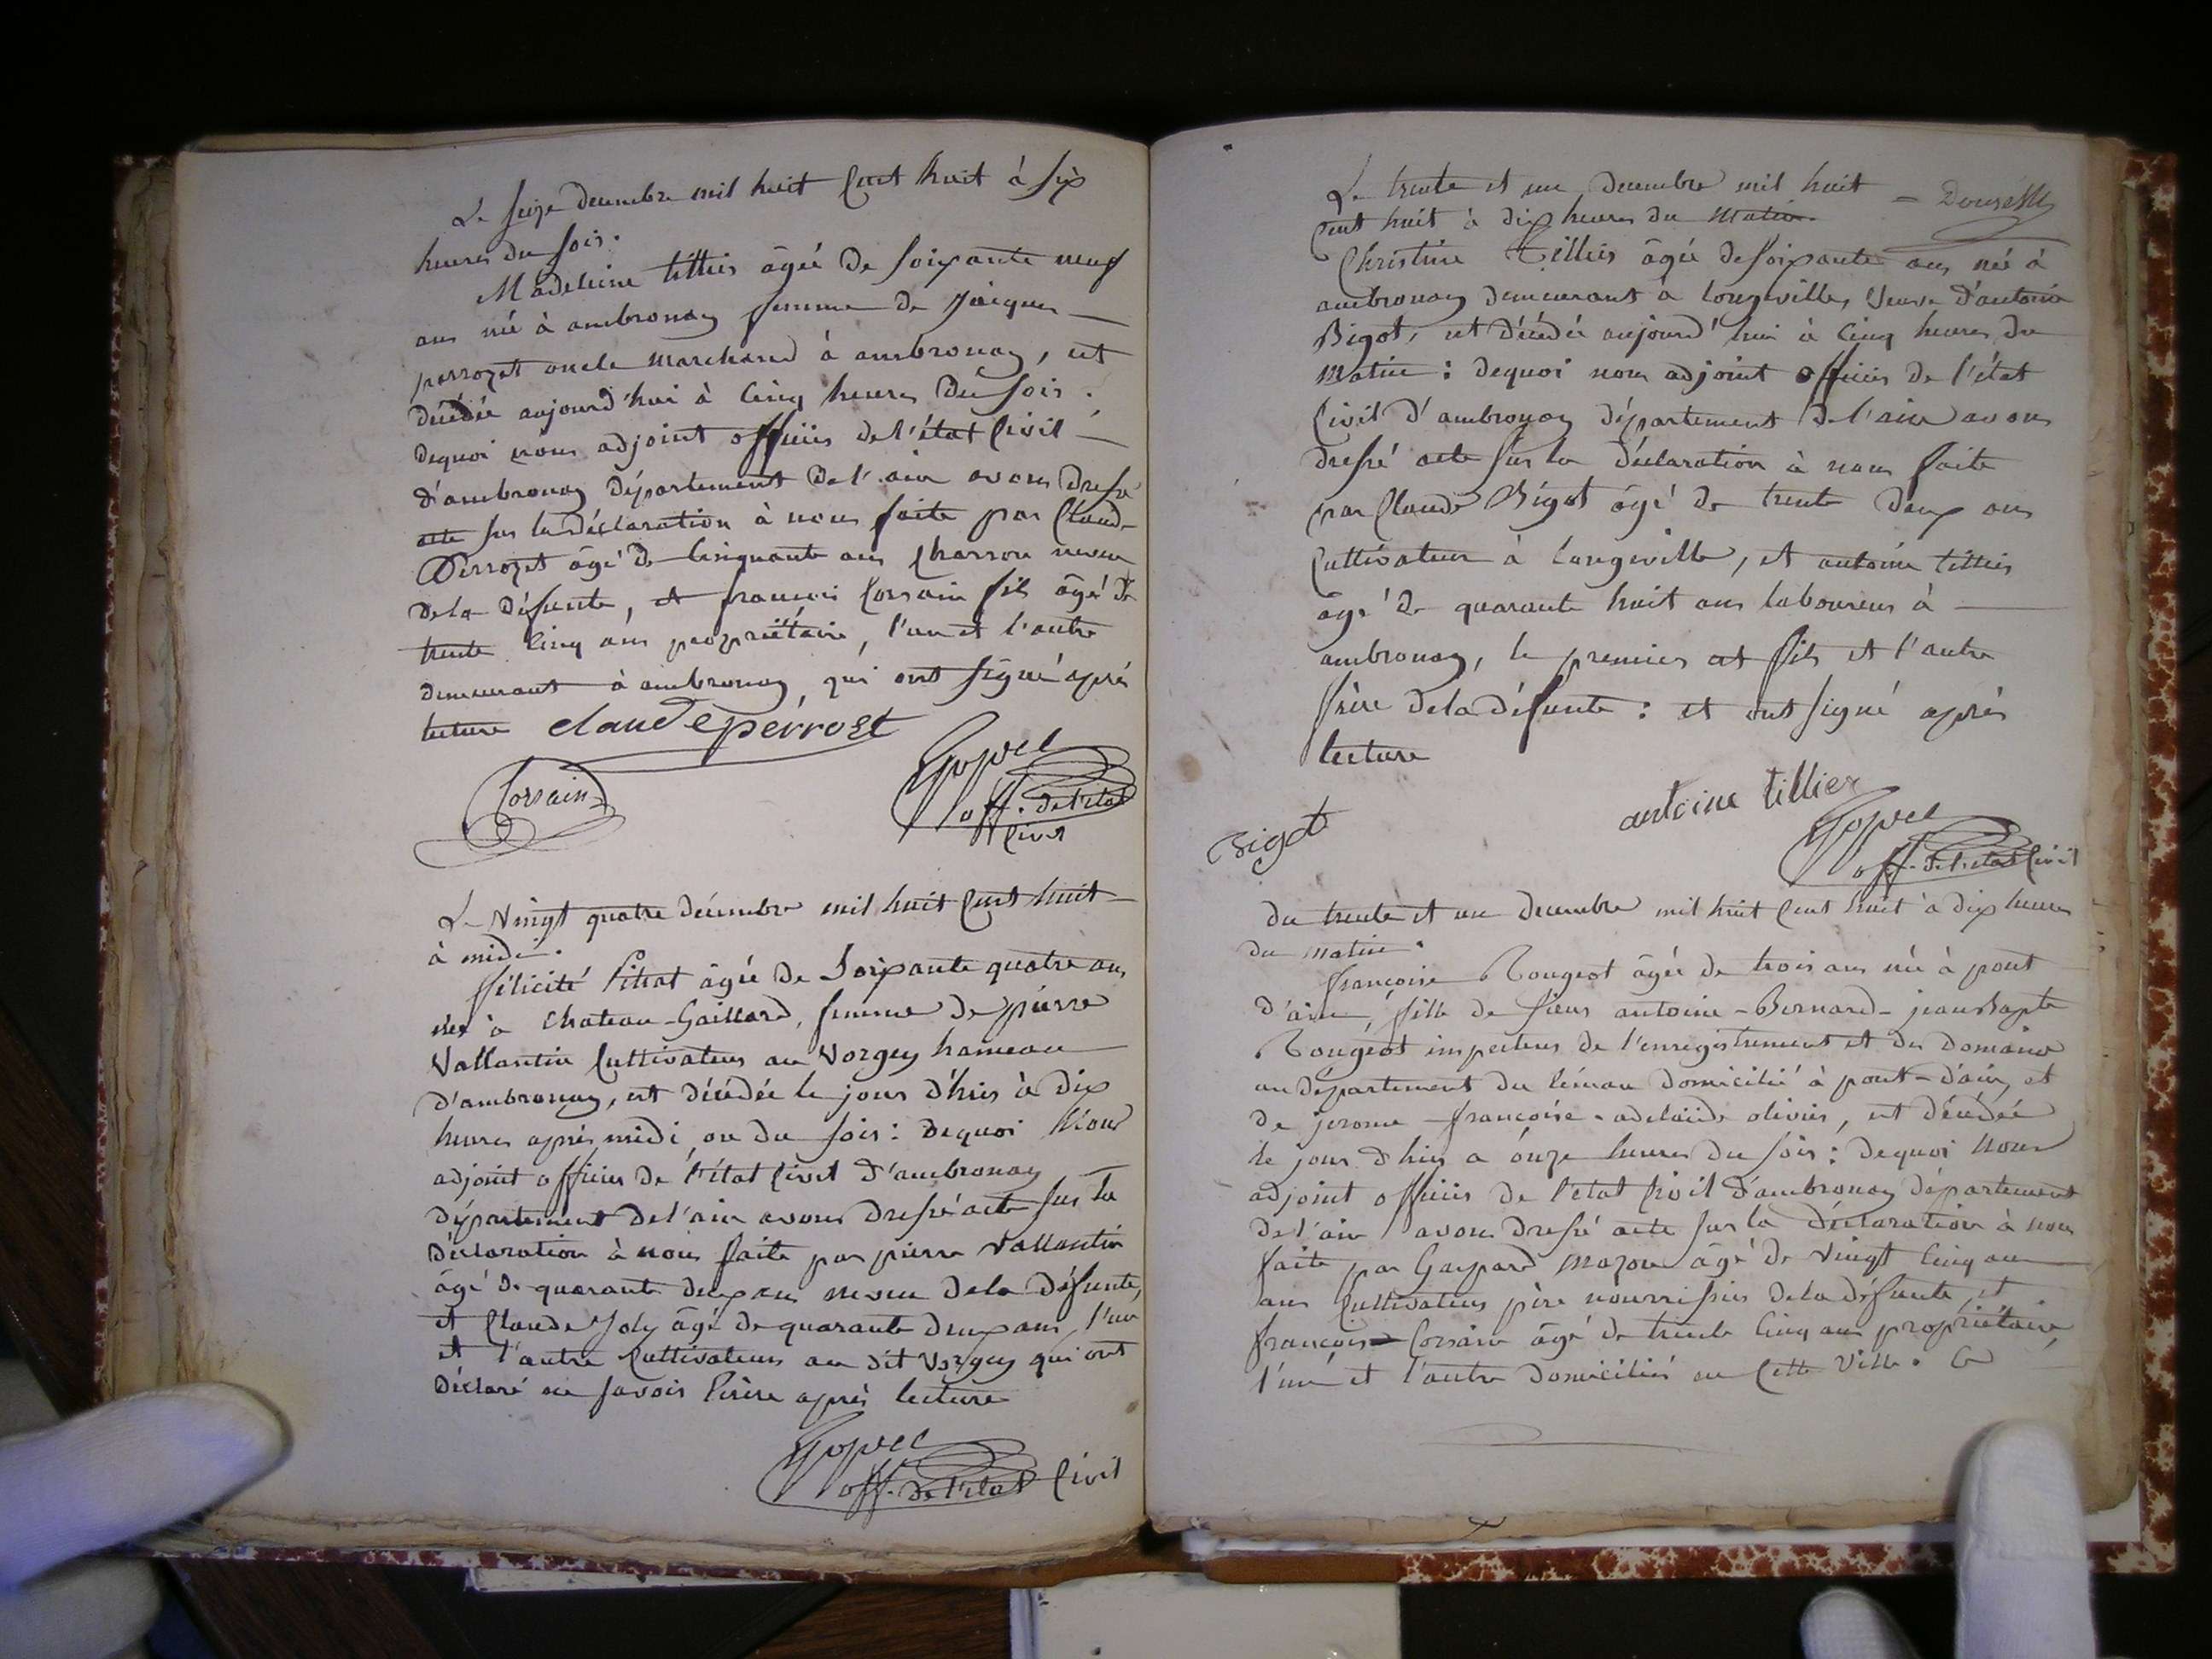 Le seize decembre mil huit cent huit à six
heures du soir.
Madeleine tillier âgée de soixante neuf
ans née à ambronay femme de Jacques
perrozet oncle marchand à ambronay, est
décédée aujourd'hui à cinq heures du soir.
dequoi nous adjoint officier de l'état civil
d'ambronay département de l'ain avons dressé
acte sur la déclaration à nous faite par Claude
Perrozet âgé de cinquante ans charron neveu
de la défunte, et francois Corsain fils âgé de
trente cinq ans propriétaire, l'un et l'autre
demeurant à ambronay, qui ont signé après
lecture claude perrozet
Corsain
off. de l'état
civil
Le vingt quatre décembre mil huit cent huit
à midi.
félicité âgée de soixante quatre ans
née à Chateau-Gaillard, femme de pierre
Vallantin cultivateur au Vorgey hameau
d'ambronay, est décédée le jour d'hier à dix
heures après midi ou du soir: dequoi Nous
adjoint officier de l'état civil d'ambronay
département de l'ain avons dressé acte sur la
déclaration à nous faite par pierre vallantin
âgé de quarante deux ans neveu de la défunte,
et Claude Joly âgé de quarante deux ans, l'un
et l'autre cultivateurs au dit Vorgey qui ont
déclaré ne savoir écrire après lecture
off. de l'état civil
Le trente et un decembre mil huit =
cent huit à dix heures du matin.
Christine Tillier âgée de soixante ans née à
ambronay demeurant à longeville, veuve d'antoine
Bigot, est décédée aujourd'hui à cinq heures du
matin: dequoi nous adjoint officier de l'état
civil d'ambronay département de l'ain avons
dressé acte sur la déclaration à nous faite
par Claude Bigot âgé de trente deux ans
cultivateur à longeville, et antoine tillier
âgé de quarante huit ans laboureur à
ambronay, le premier est fils et l'autre
frère de la défunte: et ont signé après
lecture
antoine tillier
Bigot
off. de l'état civil
du trente et un decembre mil huit cent huit à dix heures
du matin.
françoise Rougeot âgée de trois ans née à pont
d'ain, fille de sieur antoine-Bernard-jean Bapte
Rougeot inspecteur de l'enregistrement et du domaine
au département du léman domicilié à pont-d'ain, et
de jerome-françoise-adelaide olivier, est décédée
le jour d'hier a onze heures du soir: dequoi Nous
adjoint officier de l'état civil d'ambronay département
de l'ain avons dressé acte sur la déclaration à nous
faite par Gaspard mazon âgé de vingt cinq ans
ans cultivateur père nourrissier de la défunte, et
françois Corsain âgé de trente cinq ans propriétaire,
l'un et l'autre domiciliés en cette ville. Ce